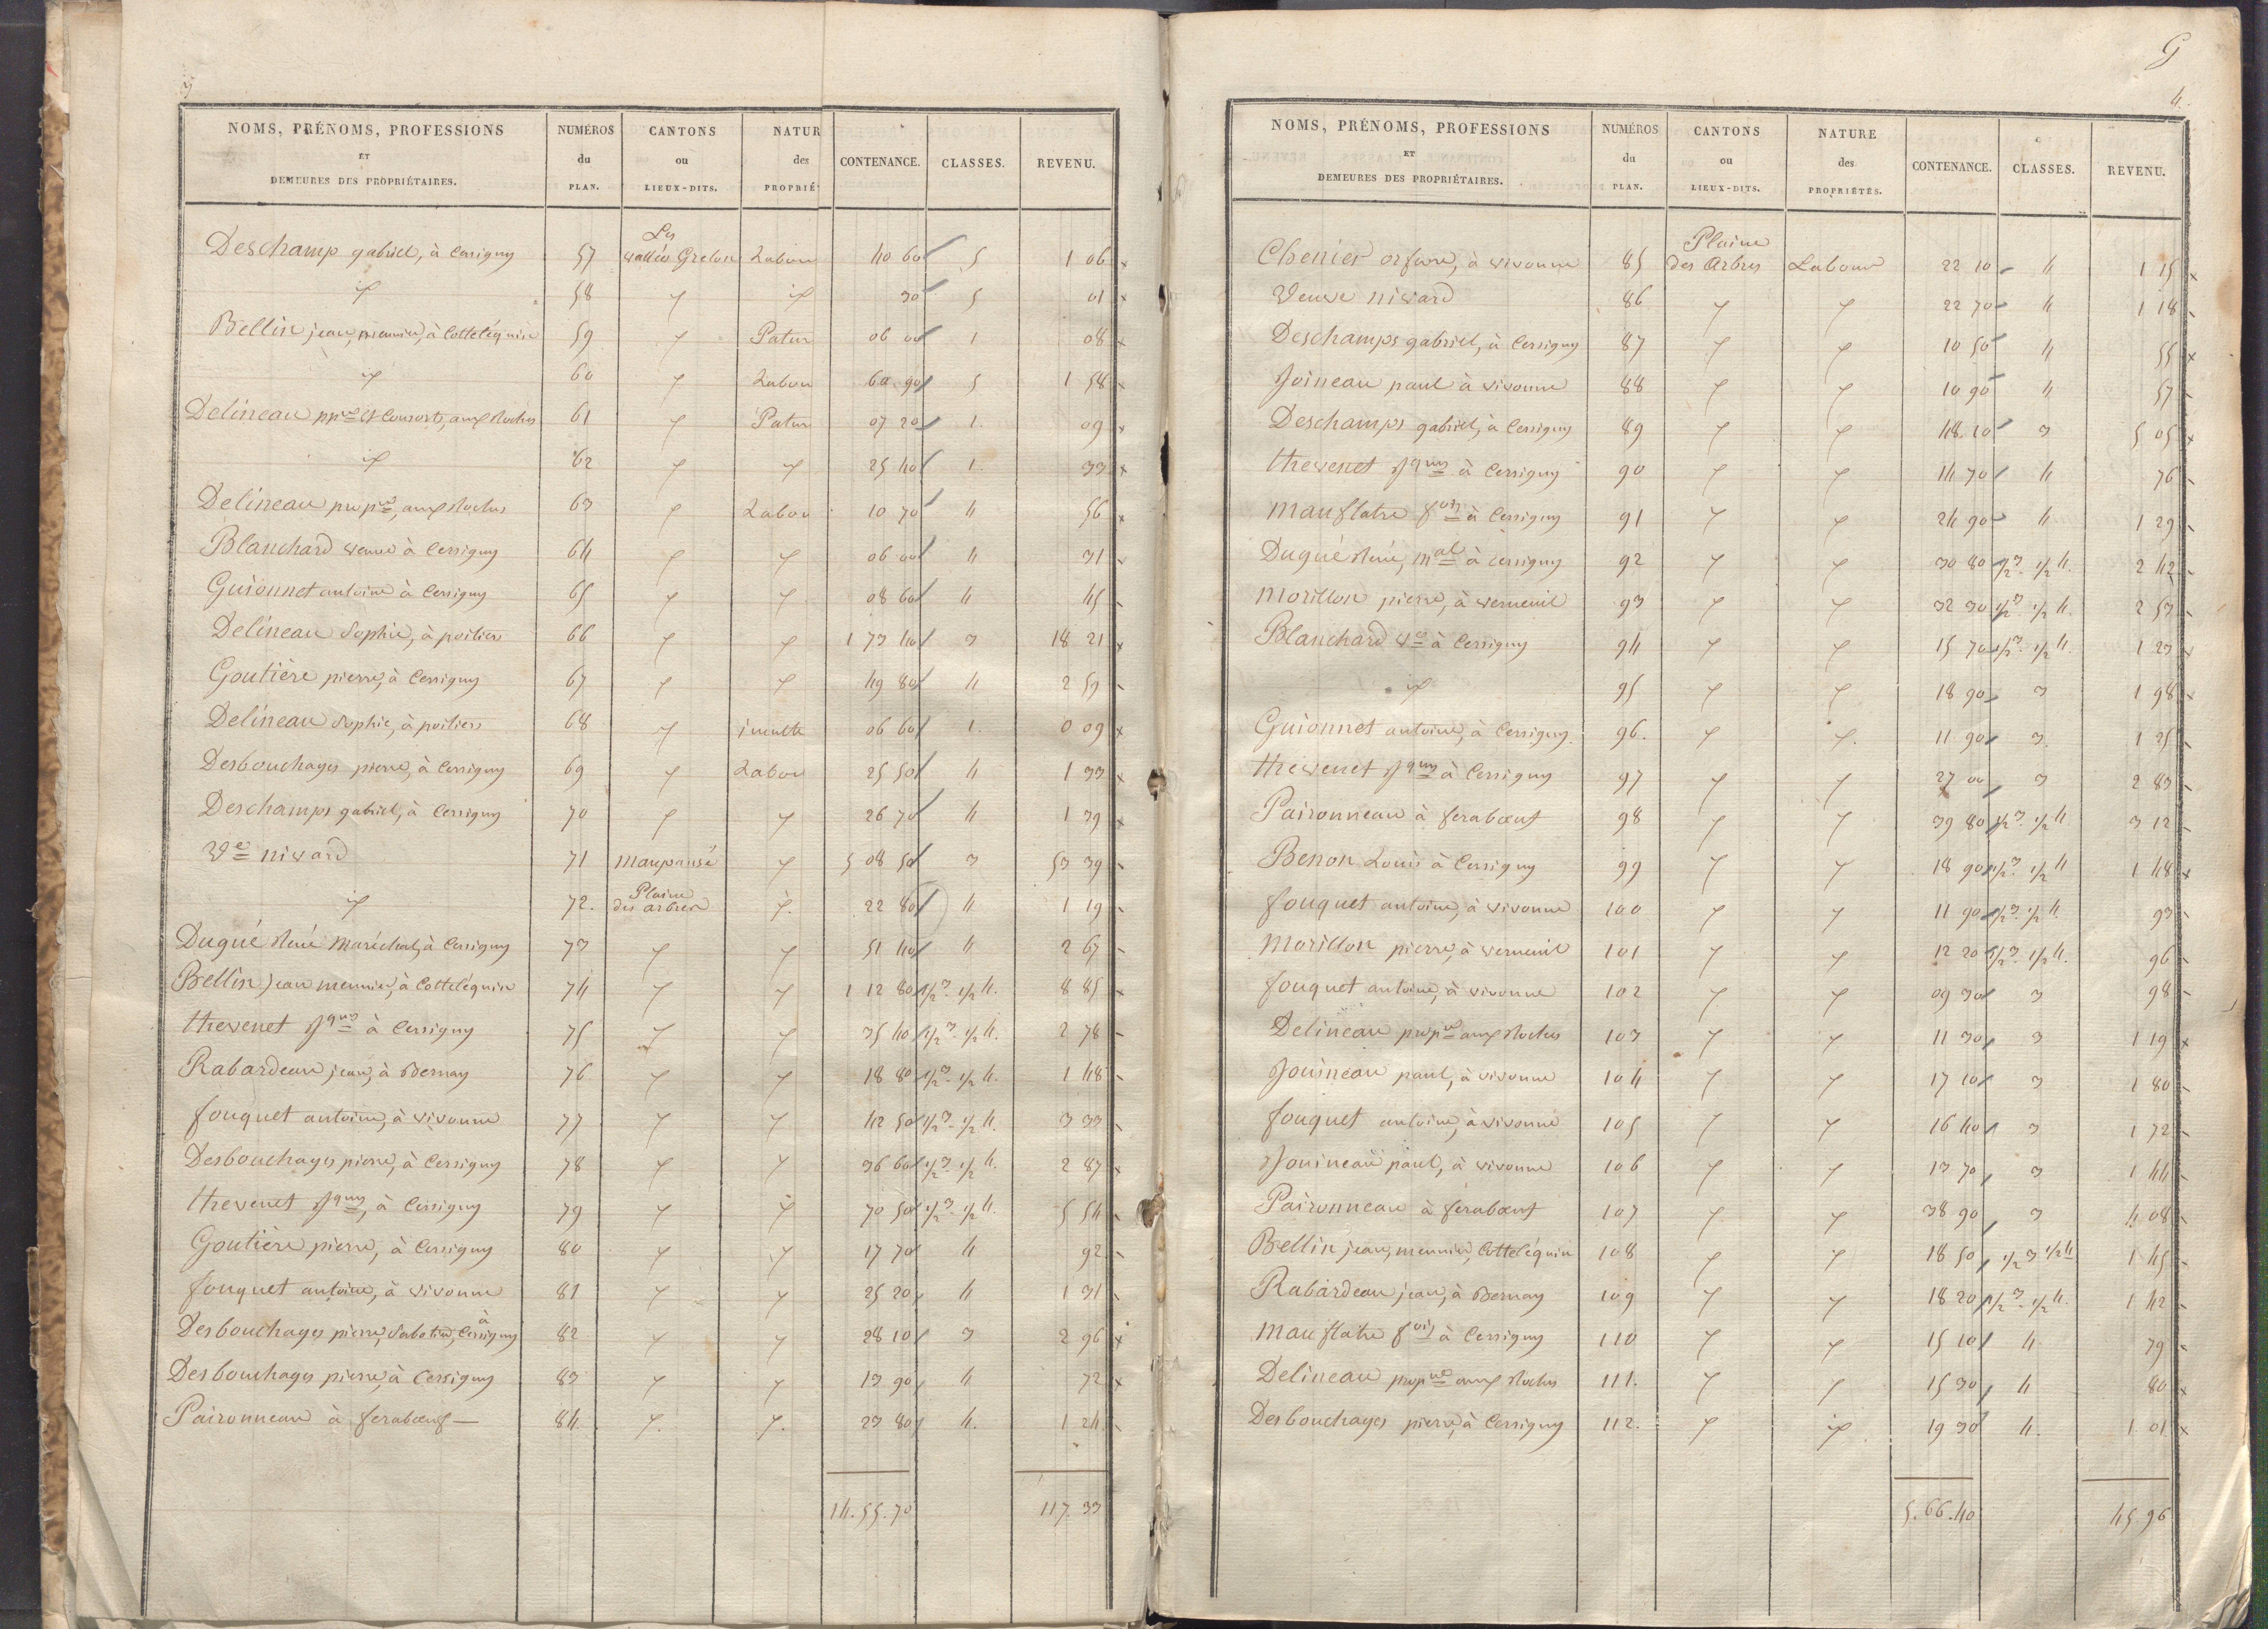 3
NOMS, PRÉNOMS, PROFESSIONS ET DEMEURES DES PROPRIÉTAIRES. | NUMÉROS du PLAN. | CANTONS ou LIEUX-DITS. | NATUR des PROPRIÉ | CONTENANCE. | CLASSES. | REVENU.
Deschamp gabriel, à Cersigny 57 Les vallées Grelon Labour 40 60 5 1 06
id 58 id id 30 5 01
Bellin jean, meunier, à Cotteléquin 59 id Patur 06 00 1 08
id 60 id Labou 60 90 5 1 58
Delineau pp.re et Consorts, aux Roches 61 id Patur 07 20 1. 09
id 62 id id 25 40 1. 33
Delineau prop.re, aux Roches 63 id Labou 10 70 4 56
Blanchard veuve à Cersigny 64 id id 06 00 4 31
Guionnet antoine à Cersigny 65 id id 08 60 4 45
Delineau Sophie, à poitiers 66 id id 1 73 40 3 18 21
Goutière pierre, à Cersigny 67 id id 49 80 4 2 59
Delineau Sophie, à poitiers 68 id inculte 06 60 1. 0 09
Desbouchages pierre, à Cersigny 69 id Labou 25 50 4 1 33
Deschamps gabriel, à Cersigny 70 id id 26 70 4 1 39
Ve nivard 71 maupensé id 5 08 50 3 53 39
id 72. Plaine des arbres id. 22 80 4 1 19
Dugué René Maréchal, à Cersigny 73 id id 51 40 4 2 67
Bellin jean meunier, à Cotteléquin 74 id id 1 12 80 1/2 3 - 1/2 4. 8 85
thevenet Jques à Cersigny 75 id id 35 40 1/2 3 - 1/2 4. 2 78
Rabardeau jean, à Bernay 76 id id 18 80 1/2 3 - 1/2 4. 1 48
fouquet antoine, à vivonne 77 id id 42 50 1/2 3 - 1/2 4. 3 33
Desbouchages pierre, à Cersigny 78 id id 36 60 1/2 3 - 1/2 4. 2 87
thevenet Jques, à Cersigny 79 id id 70 50 1/2 3 - 1/2 4. 5 54
Goutière pierre, à Cersigny 80 id id 17 70 4 92
fouquet antoine, à vivonne 81 id id 25 20 4 1 31
Desbouchages pierre, Sabotier, à Cersigny 82 id id 28 10 3 2 96
Desbouchages pierre, à Cersigny 83 id id 13 90 4 72
Paironneau à ferabœuf 84. id. id. 23 80 4. 1 24
14. 55. 70 117. 33
G
4.
NOMS, PRÉNOMS, PROFESSIONS ET DEMEURES DES PROPRIÉTAIRES. | NUMÉROS du PLAN. | CANTONS ou LIEUX-DITS. | NATURE des PROPRIÉTÉS. | CONTENANCE. | CLASSES. | REVENU.
Chenier orfevre, à vivonne 85 Plaine des Arbres Labour 22 10 4 1 15
Veuve nivard 86 id id 22 70 4 1 18
Deschamps gabriel, à Cersigny 87 id id 10 50 4 55
Joineau paul à vivonne 88 id id 10 90 4 57
Deschamps gabriel, à Cersigny 89 id id 48 10 3 5 05
thevenet Jques à Cersigny 90 id id 14 70 4 76
mauflatre fois à Cersigny 91 id id 24 90 4 1 29
Dugué René, mal à Cersigny 92 id id 30 80 1/2 3 - 1/2 4. 2 42
morillon pierre, à verneuil 93 id id 32 30 1/2 3 1/2 4. 2 53
Blanchard Ve à Cersigny 94 id id 15 70 1/2 3 - 1/2 4. 1 23
id 95 id id 18 90 3 1 98
Guionnet antoine, à Cersigny. 96. id id. 11 90 3. 1 25
thevenet Jques à Cersigny 97 id id 27 00 3 2 83
Paironneau à ferabœuf 98 id id 39 80 1/2 3 - 1/2 4. 3 12
Benon Louis à Cersigny 99 id id 18 90 1/2 3 - 1/2 4 1 48
fouquet antoine, à vivonne 100 id id 11 90 1/2 3 - 1/2 4. 93
morillon pierre, à verneuil 101 id id 12 20 1/2 3 - 1/2 4. 96
fouquet antoine, à vivonne 102 id id 09 30 3 98
Delineau prop.re aux Roches 103 id id 11 30 3 1 19
Jouineau paul, à vivonne 104 id id 17 10 3 1 80
fouquet antoine, à vivonne 105 id id 16 40 3 1 72
Jouineau paul, à vivonne 106 id id 13 70 3 1 44
Paironneau à ferabœuf 107 id id 38 90 3 4 08
Bellin jean, meunier, Cotteléquin 108 id id 18 50 1/2 3 1/2 4 1 45
Rabardeau jean, à Bernay 109 id id 18 20 1/2 3 - 1/2 4. 1 42
mauflatre fois à Cersigny 110 id id 15 10 4 79
Delineau prop.re aux Roches 111. id id 15 30 4 80
Desbouchages pierre, à Cersigny 112. id id 19 30 4. 1 01
5. 66. 40 45. 96